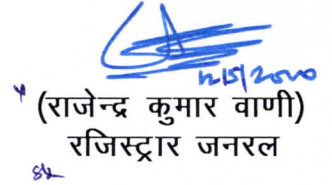 12/5/2020
(राजेन्द्र कुमार वाणी)
रजिस्ट्रार जनरल